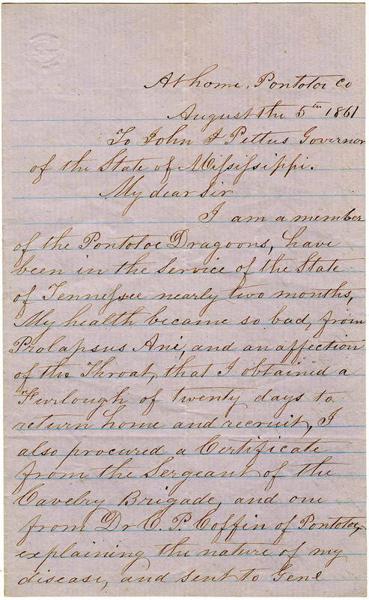 At home, Pontotoc Co
August the 5th 1861
To John J Pettus Governor
of the State of Missisippi.
My dear Sir
I am a member
of the Pontotoc Dragoons, have
been in the service of the State
of Tennessee nearly two months,
My health became so bad, from
Prolapsus Ani, and an affection
of the Throat, that I obtained a
Furlough of twenty days to
return home and recruit, I
also procured a Certificate
from the Sergeant of the
Cavelry Brigade, and one
from Dr C. P. Coffin of Pontotoc,
explaining the nature of my
disease, and sent to Genl